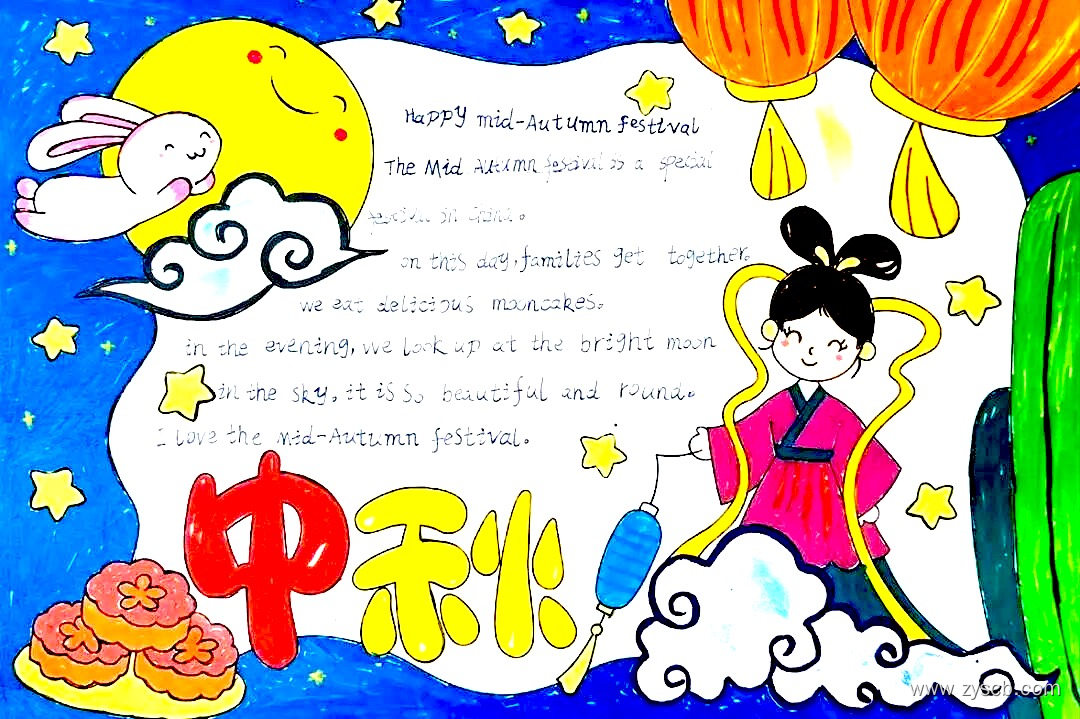 Happy mid-Autumn festival
The Mid Autumn festival is a special
festival in China。
on this day,families get together。
we eat delicious mooncakes。
in the evening,we look up at the bright moon
in the sky, it is so beautiful and round。
I love the mid-Autumn festival.
中秋
www.zyscb.com